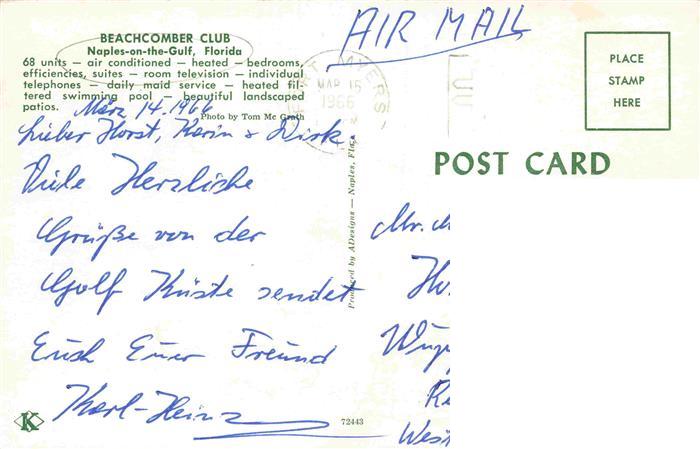 AIR MAIL
BEACHCOMBER CLUB
Naples-on-the-Gulf, Florida
68 units — air conditioned — heated — bedrooms,
efficiencies, suites — room television — individual
telephones — daily maid service — heated fil-
tered swimming pool — beautiful landscaped
patios.
Photo by Tom Mc Grath
März 14. 1966
Lieber Horst, Karin & Dirk
Viele Herzliche
Grüße von der
Golf Küste sendet
Euch Euer Freund
Karl-Heinz
K
72443
Produced by ADesigns — Naples, Fla.
FORT MYERS
MAR 15
1966
PLACE
STAMP
HERE
POST CARD
Mr.